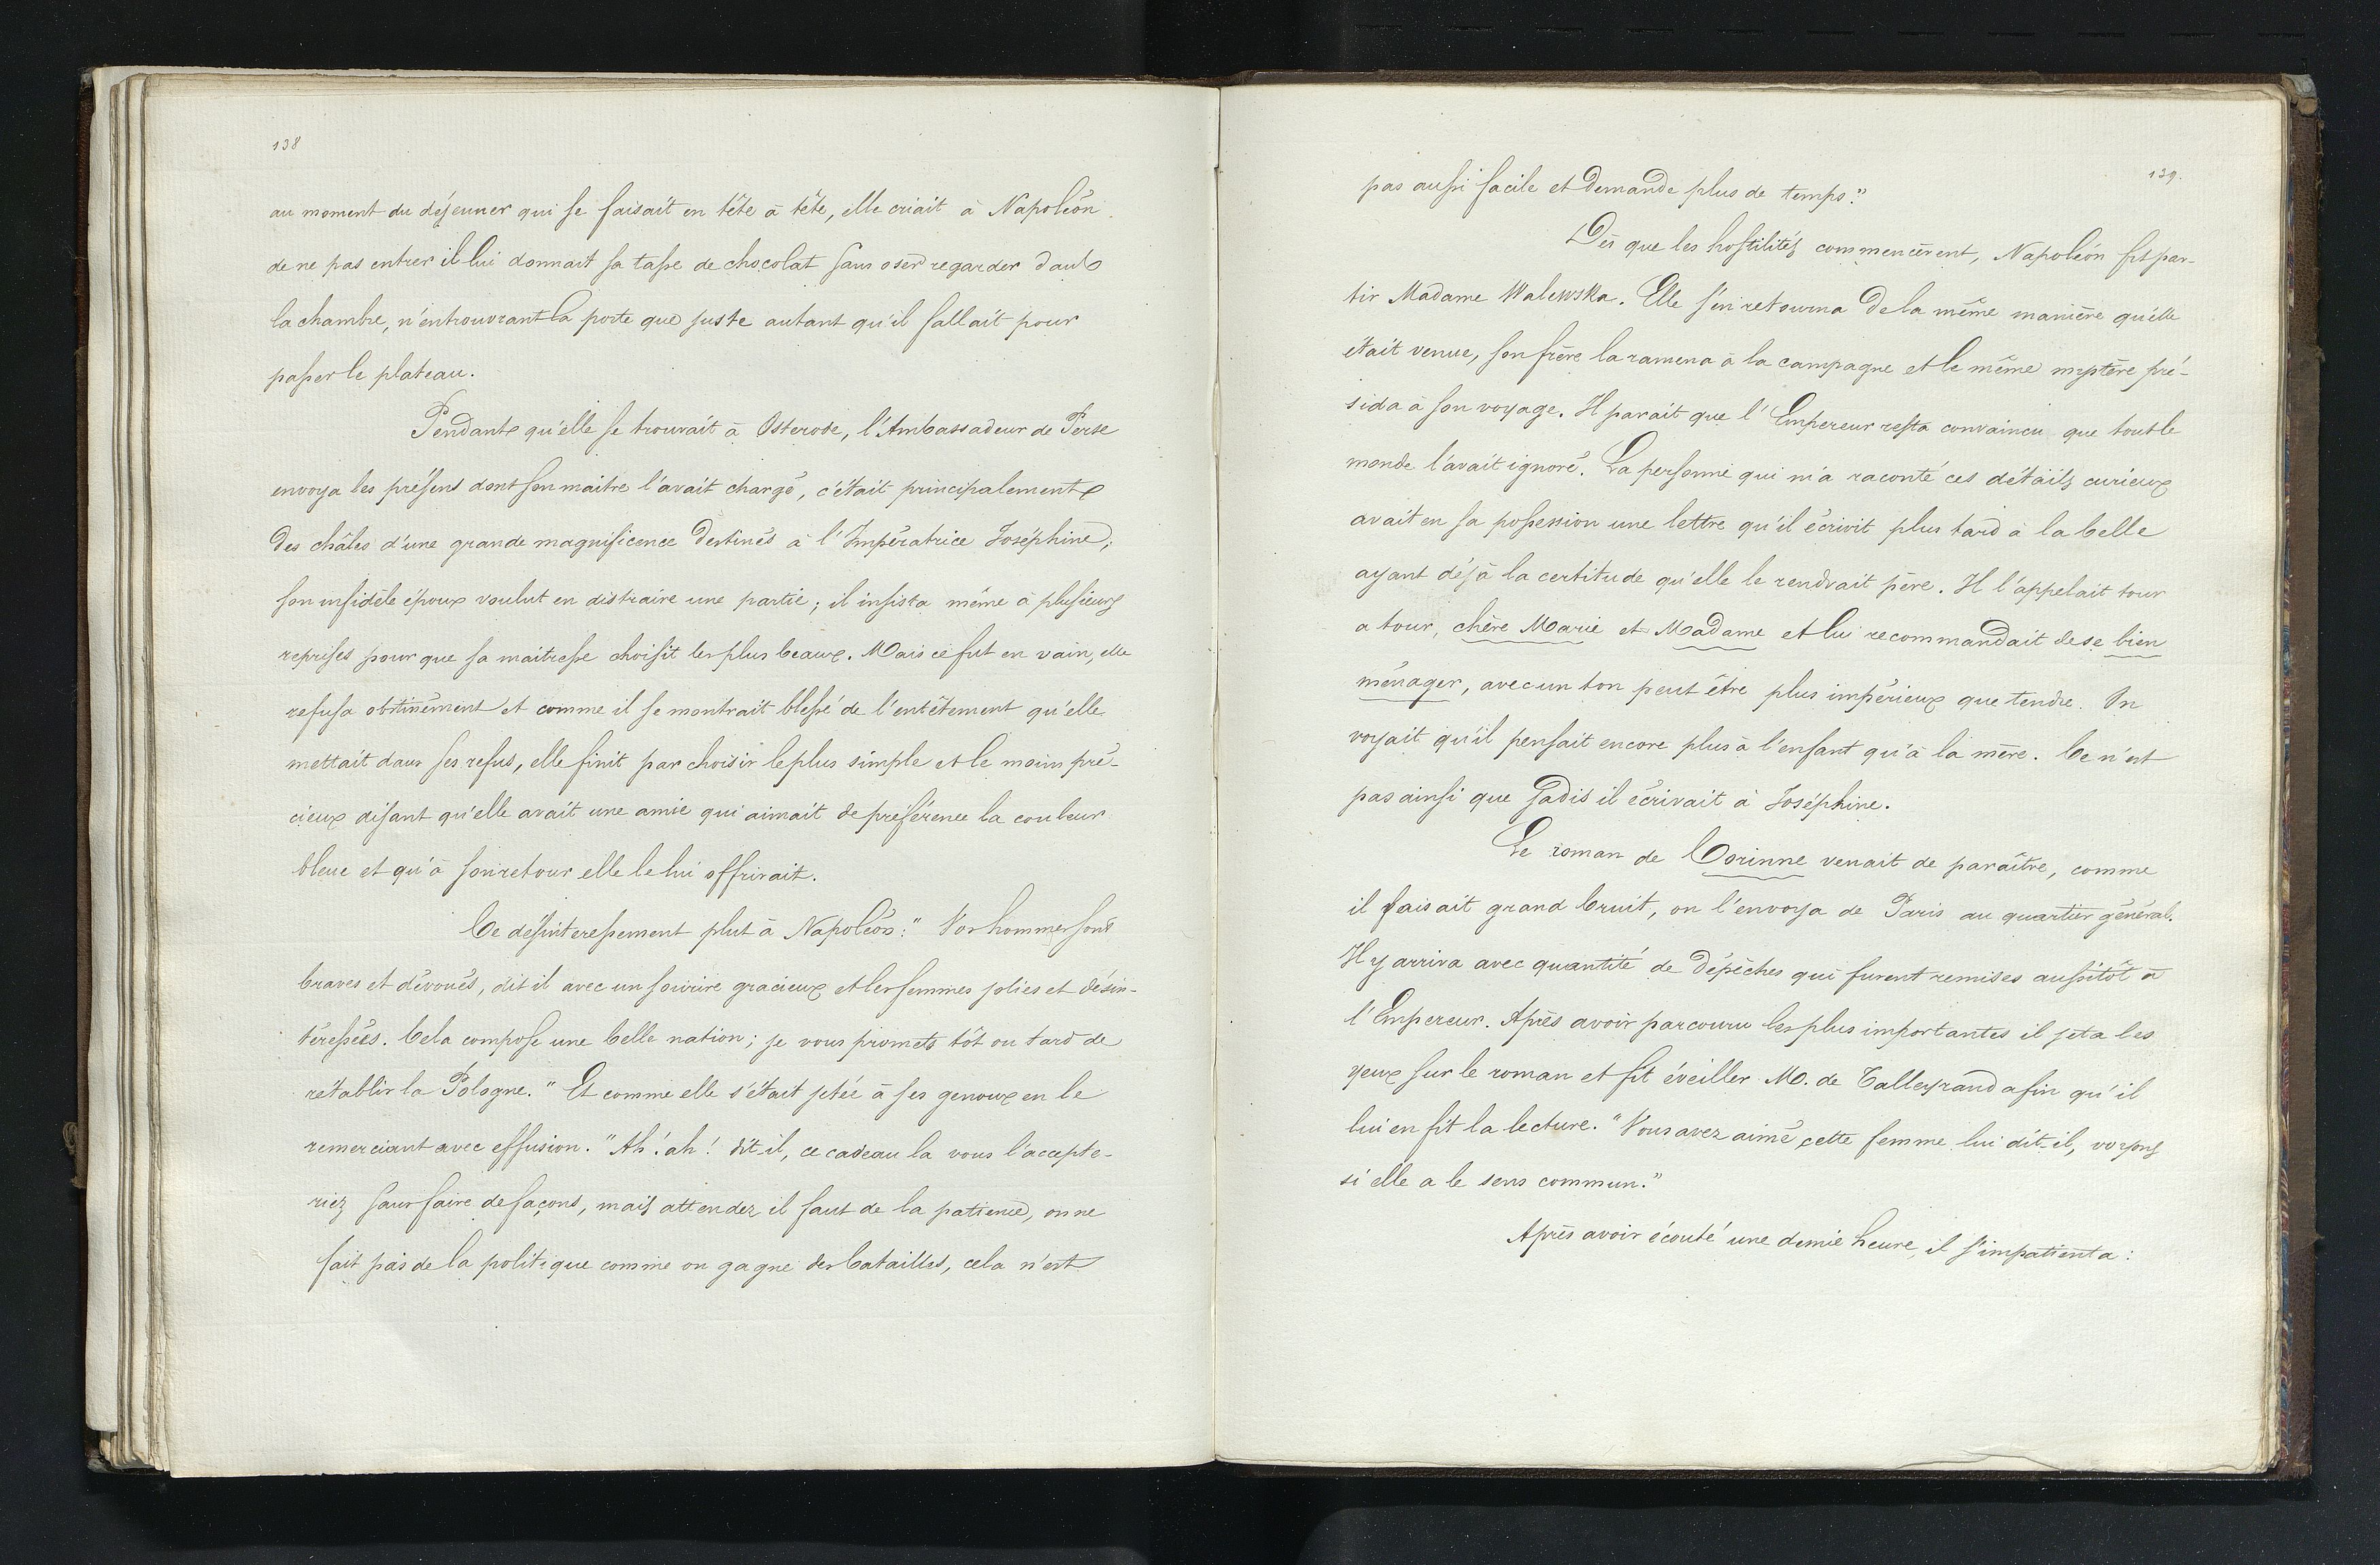 138
au moment du déjeuner qui se faisait en tête à tête, elle criait à Napoléon
de ne pas entrer il lui donnait sa tasse de chocolat sans oser regarder dans
la chambre, n'entrouvrant la porte que juste autant qu'il fallait pour
passer le plateau.
Pendant qu'elle se trouvait à Osterode, l'Ambassadeur de Perse
envoya les présens dont son maitre l'avait chargé, c'était principalement
des châles d'une grande magnificence destinés à l'Impératrice Joséphine;
son infidèle époux voulut en distraire une partie; il insista même à plusieurs
reprises pour que sa maitresse choisit les plus beaux. Mais ce fut en vain, elle
refusa obstinément et comme il se montrait blessé de l'entêtement qu'elle
mettait dans ses refus, elle finit par choisir le plus simple et le moins pré-
cieux disant qu'elle avait une amie qui aimait de préférence la couleur
bleue et qu'à son retour elle le lui offrirait.
Ce désinteressement plut à Napoléon: "Vos hommes sont
braves et dévoués, dit il avec un sourire gracieux et les femmes jolies et désin-
téressées. Cela compose une belle nation; je vous promets tôt ou tard de
rétablir la Pologne." Et comme elle s'était jetée à ses genoux en le
remerciant avec effusion. "Ah! ah! dit-il, ce cadeau la vous l'accepte-
riez sans faire de façons, mais attendez il faut de la patience, on ne
fait pas de la politique comme on gagne des batailles, cela n'est
139.
pas aussi facile et demande plus de temps."
Dès que les hostilités commencèrent, Napoléon fit par-
tir Madame Walewska. Elle s'en retourna de la même manière qu'elle
était venue, son frère la ramena à la campagne et le même mystère pré-
sida à son voyage. Il parait que l'Empereur resta convaincu que tout le
monde l'avait ignoré. La personne qui m'a raconté ces détails curieux
avait en sa possession une lettre qu'il écrivit plus tard à la belle
ayant déjà la certitude qu'elle le rendrait père. Il l'appelait tour
a tour, chère Marie et Madame et lui recommandait de se bien
ménager, avec un ton peut être plus impérieux que tendre. On
voyait qu'il pensait encore plus à l'enfant qu'à la mère. Ce n'est
pas ainsi que jadis il écrivait à Joséphine.
Le roman de Corinne venait de paraître, comme
il faisait grand bruit, on l'envoya de Paris au quartier général.
Il y arriva avec quantité de dépêches qui furent remises aussitôt à
l'Empereur. Après avoir parcouru les plus importantes il jeta les
yeux sur le roman et fit éveiller M. de Talleyrand afin qu'il
lui en fit la lecture. "Vous avez aimé cette femme lui dit-il, voyons
si elle a le sens commun."
Après avoir écouté une demie heure, il s'impatienta: